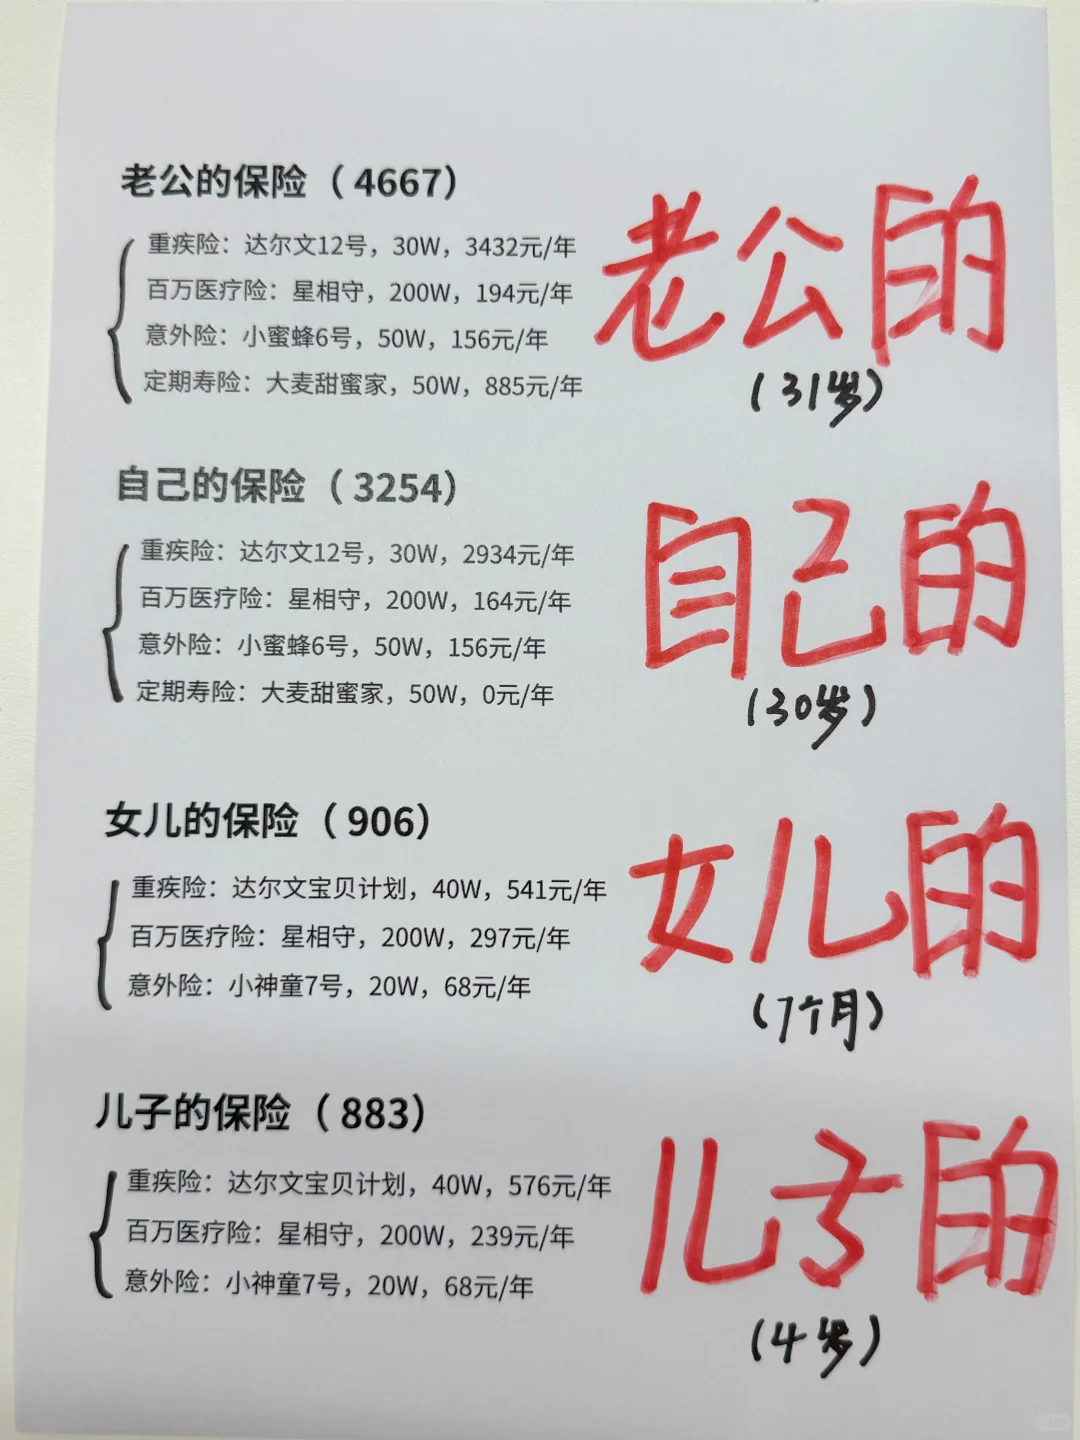 老公的保险（4667）
重疾险：达尔文12号，30W，3432元/年
百万医疗险：星相守，200W，194元/年
意外险：小蜜蜂6号，50W，156元/年
定期寿险：大麦甜蜜家，50W，885元/年
老公的
（31岁）
自己的保险（3254）
重疾险：达尔文12号，30W，2934元/年
百万医疗险：星相守，200W，164元/年
意外险：小蜜蜂6号，50W，156元/年
定期寿险：大麦甜蜜家，50W，0元/年
自己的
（30岁）
女儿的保险（906）
重疾险：达尔文宝贝计划，40W，541元/年
百万医疗险：星相守，200W，297元/年
意外险：小神童7号，20W，68元/年
女儿的
（7个月）
儿子的保险（883）
重疾险：达尔文宝贝计划，40W，576元/年
百万医疗险：星相守，200W，239元/年
意外险：小神童7号，20W，68元/年
儿子的
（4岁）